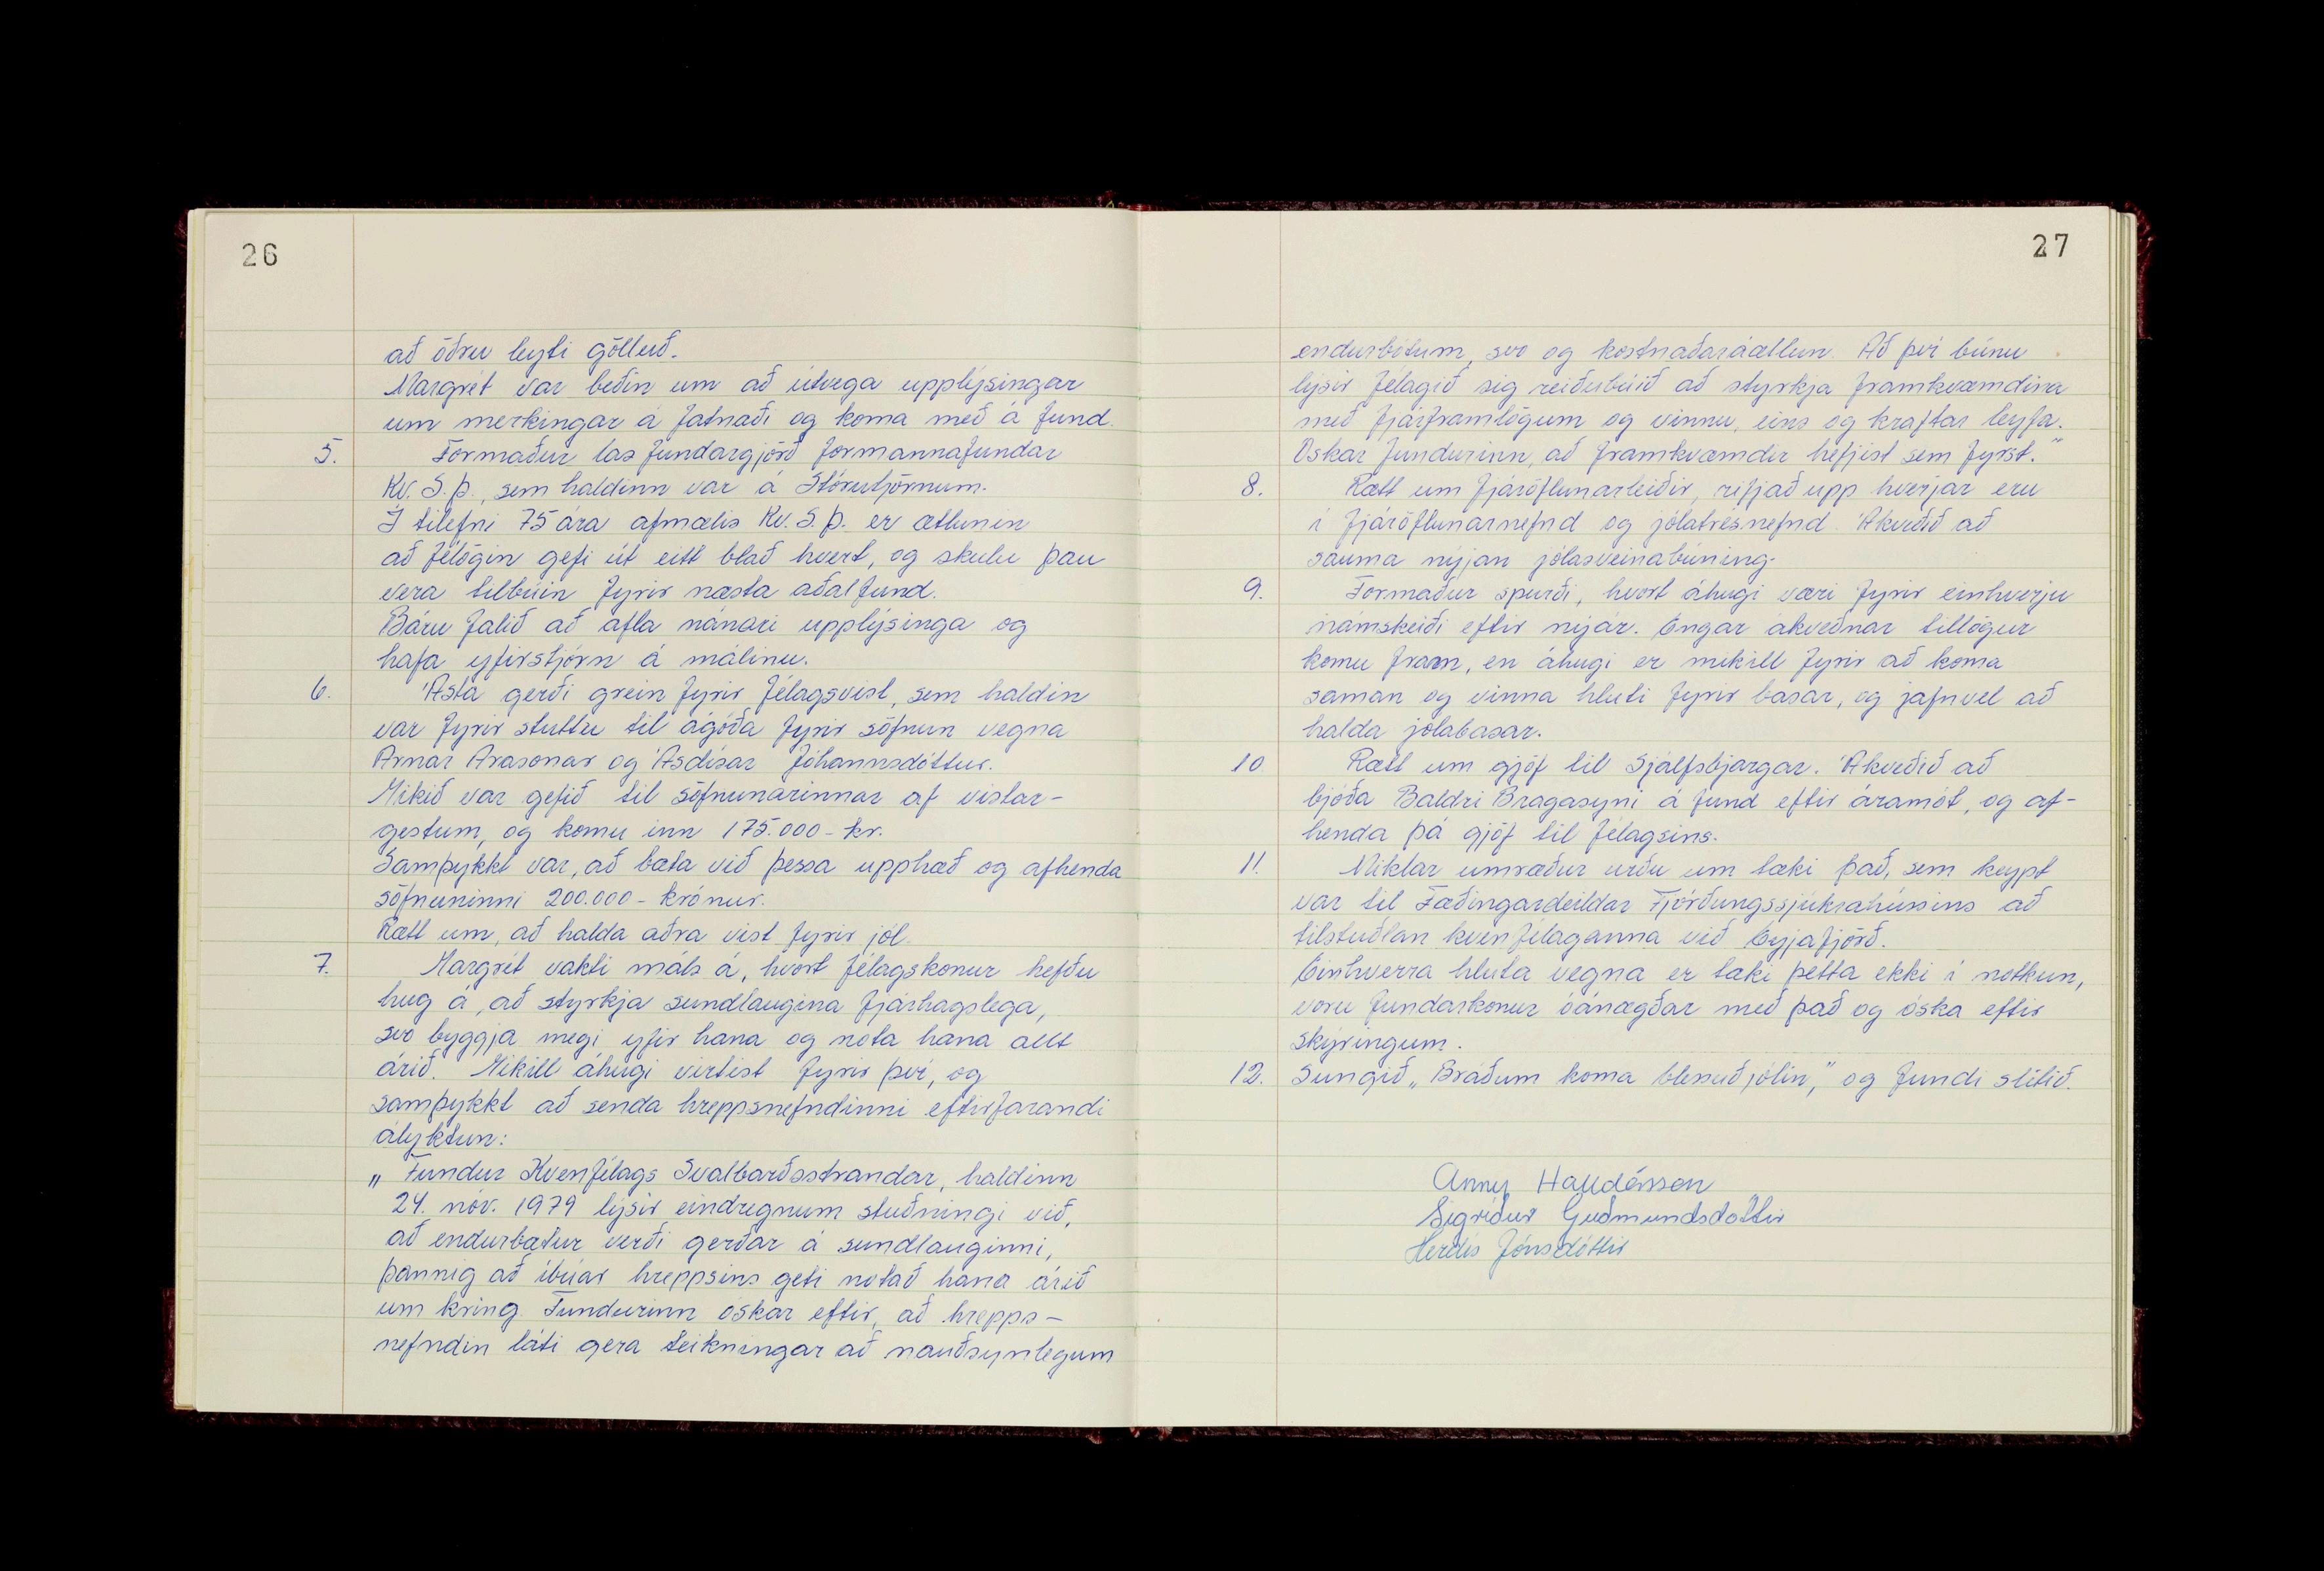 26
að öðru leyti gölluð.
Margrét var beðin um að útvega upplýsingar
um merkingar á fatnaði og koma með á fund.
5. Formaður las fundargjörð formannafundar
Kv. S.þ., sem haldinn var á Stórutjörnum.
Í tilefni 75 ára afmælis Kv. S. þ. er ætlunin
að félögin gefi út eitt blað hvert, og skulu þau
vera tilbúin fyrir næsta aðalfund.
Báru falið að afla nánari upplýsinga og
hafa yfirstjórn á málinu.
6. Ásta gerði grein fyrir félagsvist, sem haldin
var fyrir stuttu til ágóða fyrir söfnun vegna
Arnar Arasonar og Ásdísar Jóhannsdóttur.
Mikið var gefið til söfnunarinnar af vistar-
gestum, og komu inn 175.000- kr.
Samþykkt var, að bæta við þessa upphæð og afhenda
söfnuninni 200.000- krónur.
Rætt um, að halda aðra vist fyrir jól.
7. Margrét vakti máls á, hvort félagskonur hefðu
hug á, að styrkja sundlaugina fjárhagslega,
svo byggja megi yfir hana og nota hana allt
árið. Mikill áhugi virtist fyrir því, og
samþykkt að senda hreppsnefndinni eftirfarandi
ályktun:
„Fundur Kvenfélags Svalbarðsstrandar, haldinn
24. nóv. 1979 lýsir eindregnum stuðningi við,
að endurbætur verði gerðar á sundlauginni,
þannig að íbúar hreppsins geti notað hana árið
um kring. Fundurinn óskar eftir, að hrepps-
nefndin láti gera teikningar að nauðsynlegum
27
endurbótum, svo og kostnaðaráætlun. Að því búnu
lýsir félagið sig reiðubúið að styrkja framkvæmdina
með fjárframlögum og vinnu, eins og kraftar leyfa.
Óskar fundurinn, að framkvæmdir hefjist sem fyrst."
8. Rætt um fjáröflunarleiðir, rifjað upp hverjar eru
í fjáröflunarnefnd og jólatrésnefnd. Ákveðið að
sauma nýjan jólasveinabúning.
9. Formaður spurði, hvort áhugi væri fyrir einhverju
námskeiði eftir nýár. Engar ákveðnar tillögur
komu fram, en áhugi er mikill fyrir að koma
saman og vinna hluti fyrir basar, og jafnvel að
halda jólabasar.
10. Rætt um gjöf til Sjálfsbjargar. Ákveðið að
bjóða Baldri Bragasyni á fund eftir áramót, og af-
henda þá gjöf til félagsins.
11. Miklar umræður urðu um tæki það, sem keypt
var til Fæðingardeildar Fjórðungssjúkrahússins að
tilstuðlan kvenfélaganna við Eyjafjörð.
Einhverra hluta vegna er tæki þetta ekki í notkun,
voru fundarkonur óánægðar með það og óska eftir
skýringum.
12. Sungið „Bráðum koma blessuð jólin," og fundi slitið.
Anny Halldórsson
Sigríður Guðmundsdóttir
Herdís Jónsdóttir